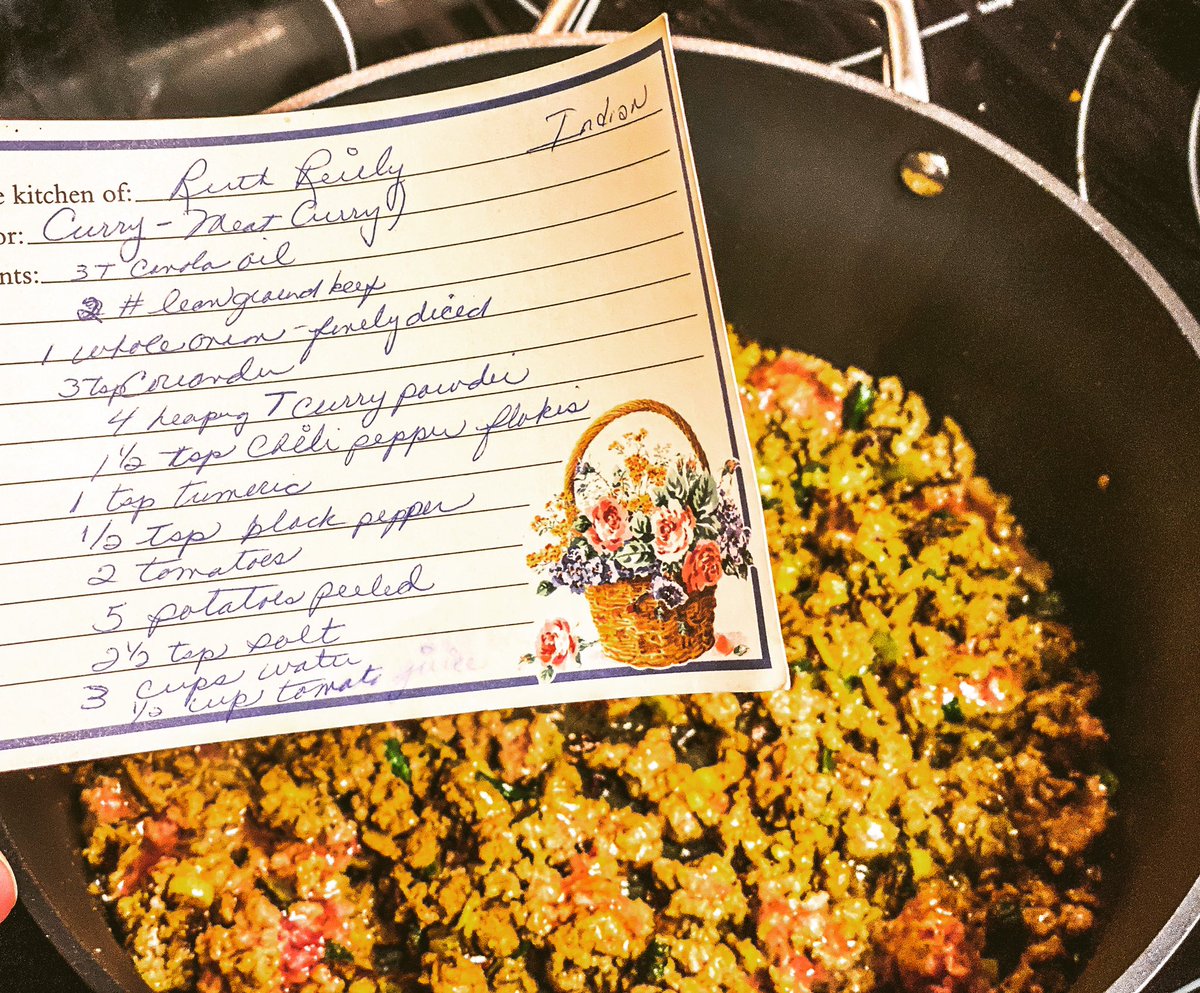 Indian
e kitchen of: Ruth Reily
or: Curry - Meat Curry)
nts: 3 T Canola oil
2 # lean ground beef
1 whole onion - finely diced
3 tsp Coriander
4 heaping T Curry powder
1 1/2 tsp Chili pepper flakes
1 tsp tumeric
1/2 tsp black pepper
2 tomatoes
5 potatoes peeled
2 1/2 tsp salt
3 cups water
1/2 cup tomato juice